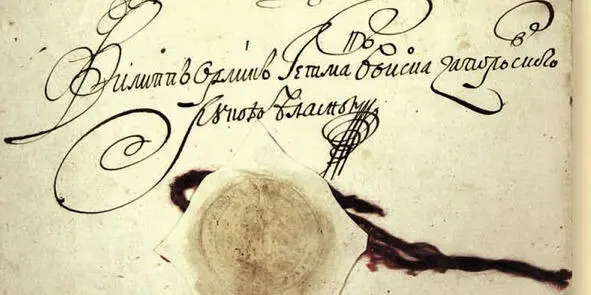 Филиппъ Орликъ Гетманъ Воиска Запорозкого
Рукою власною